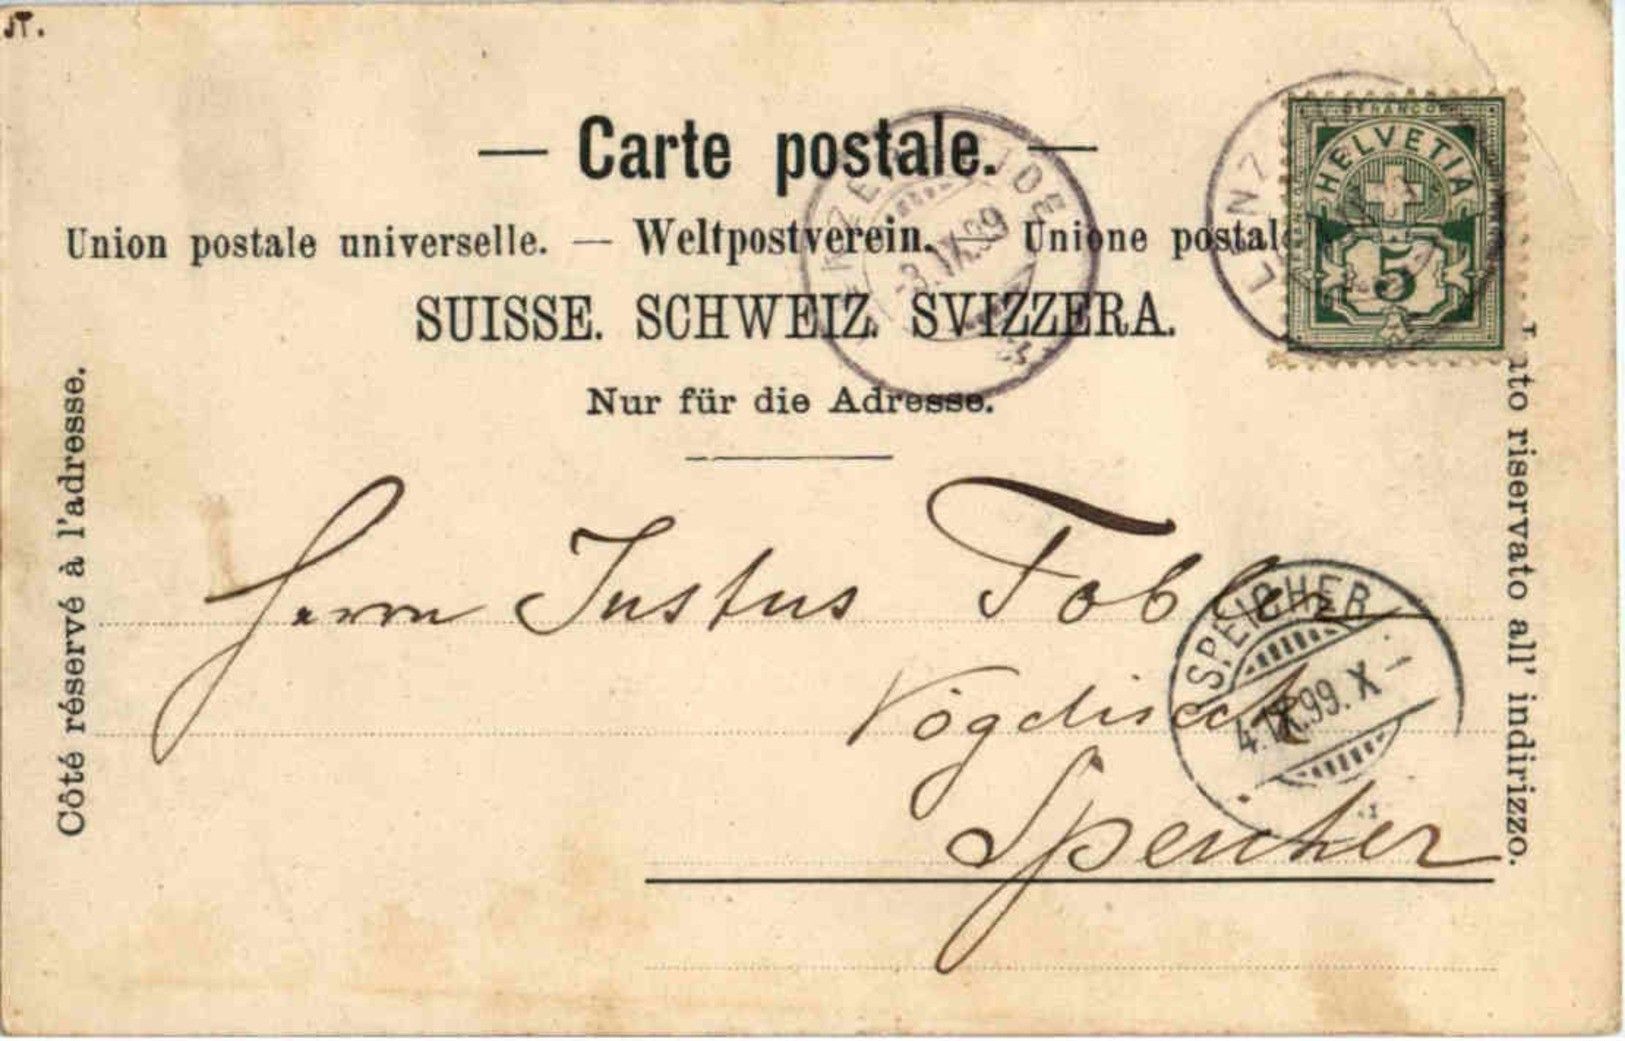 Carte postale.
Union postale universelle. — Weltpostverein. — Unione postale
SUISSE. SCHWEIZ. SVIZZERA.
Nur für die Adresse.
Côté réservé à l'adresse.
riservato all' indirizzo.
FRANCO
HELVETIA
5
LENZ
3.IX.99
SPEICHER
4.IX.99.X
Herrn Justus Tobler
Speicher